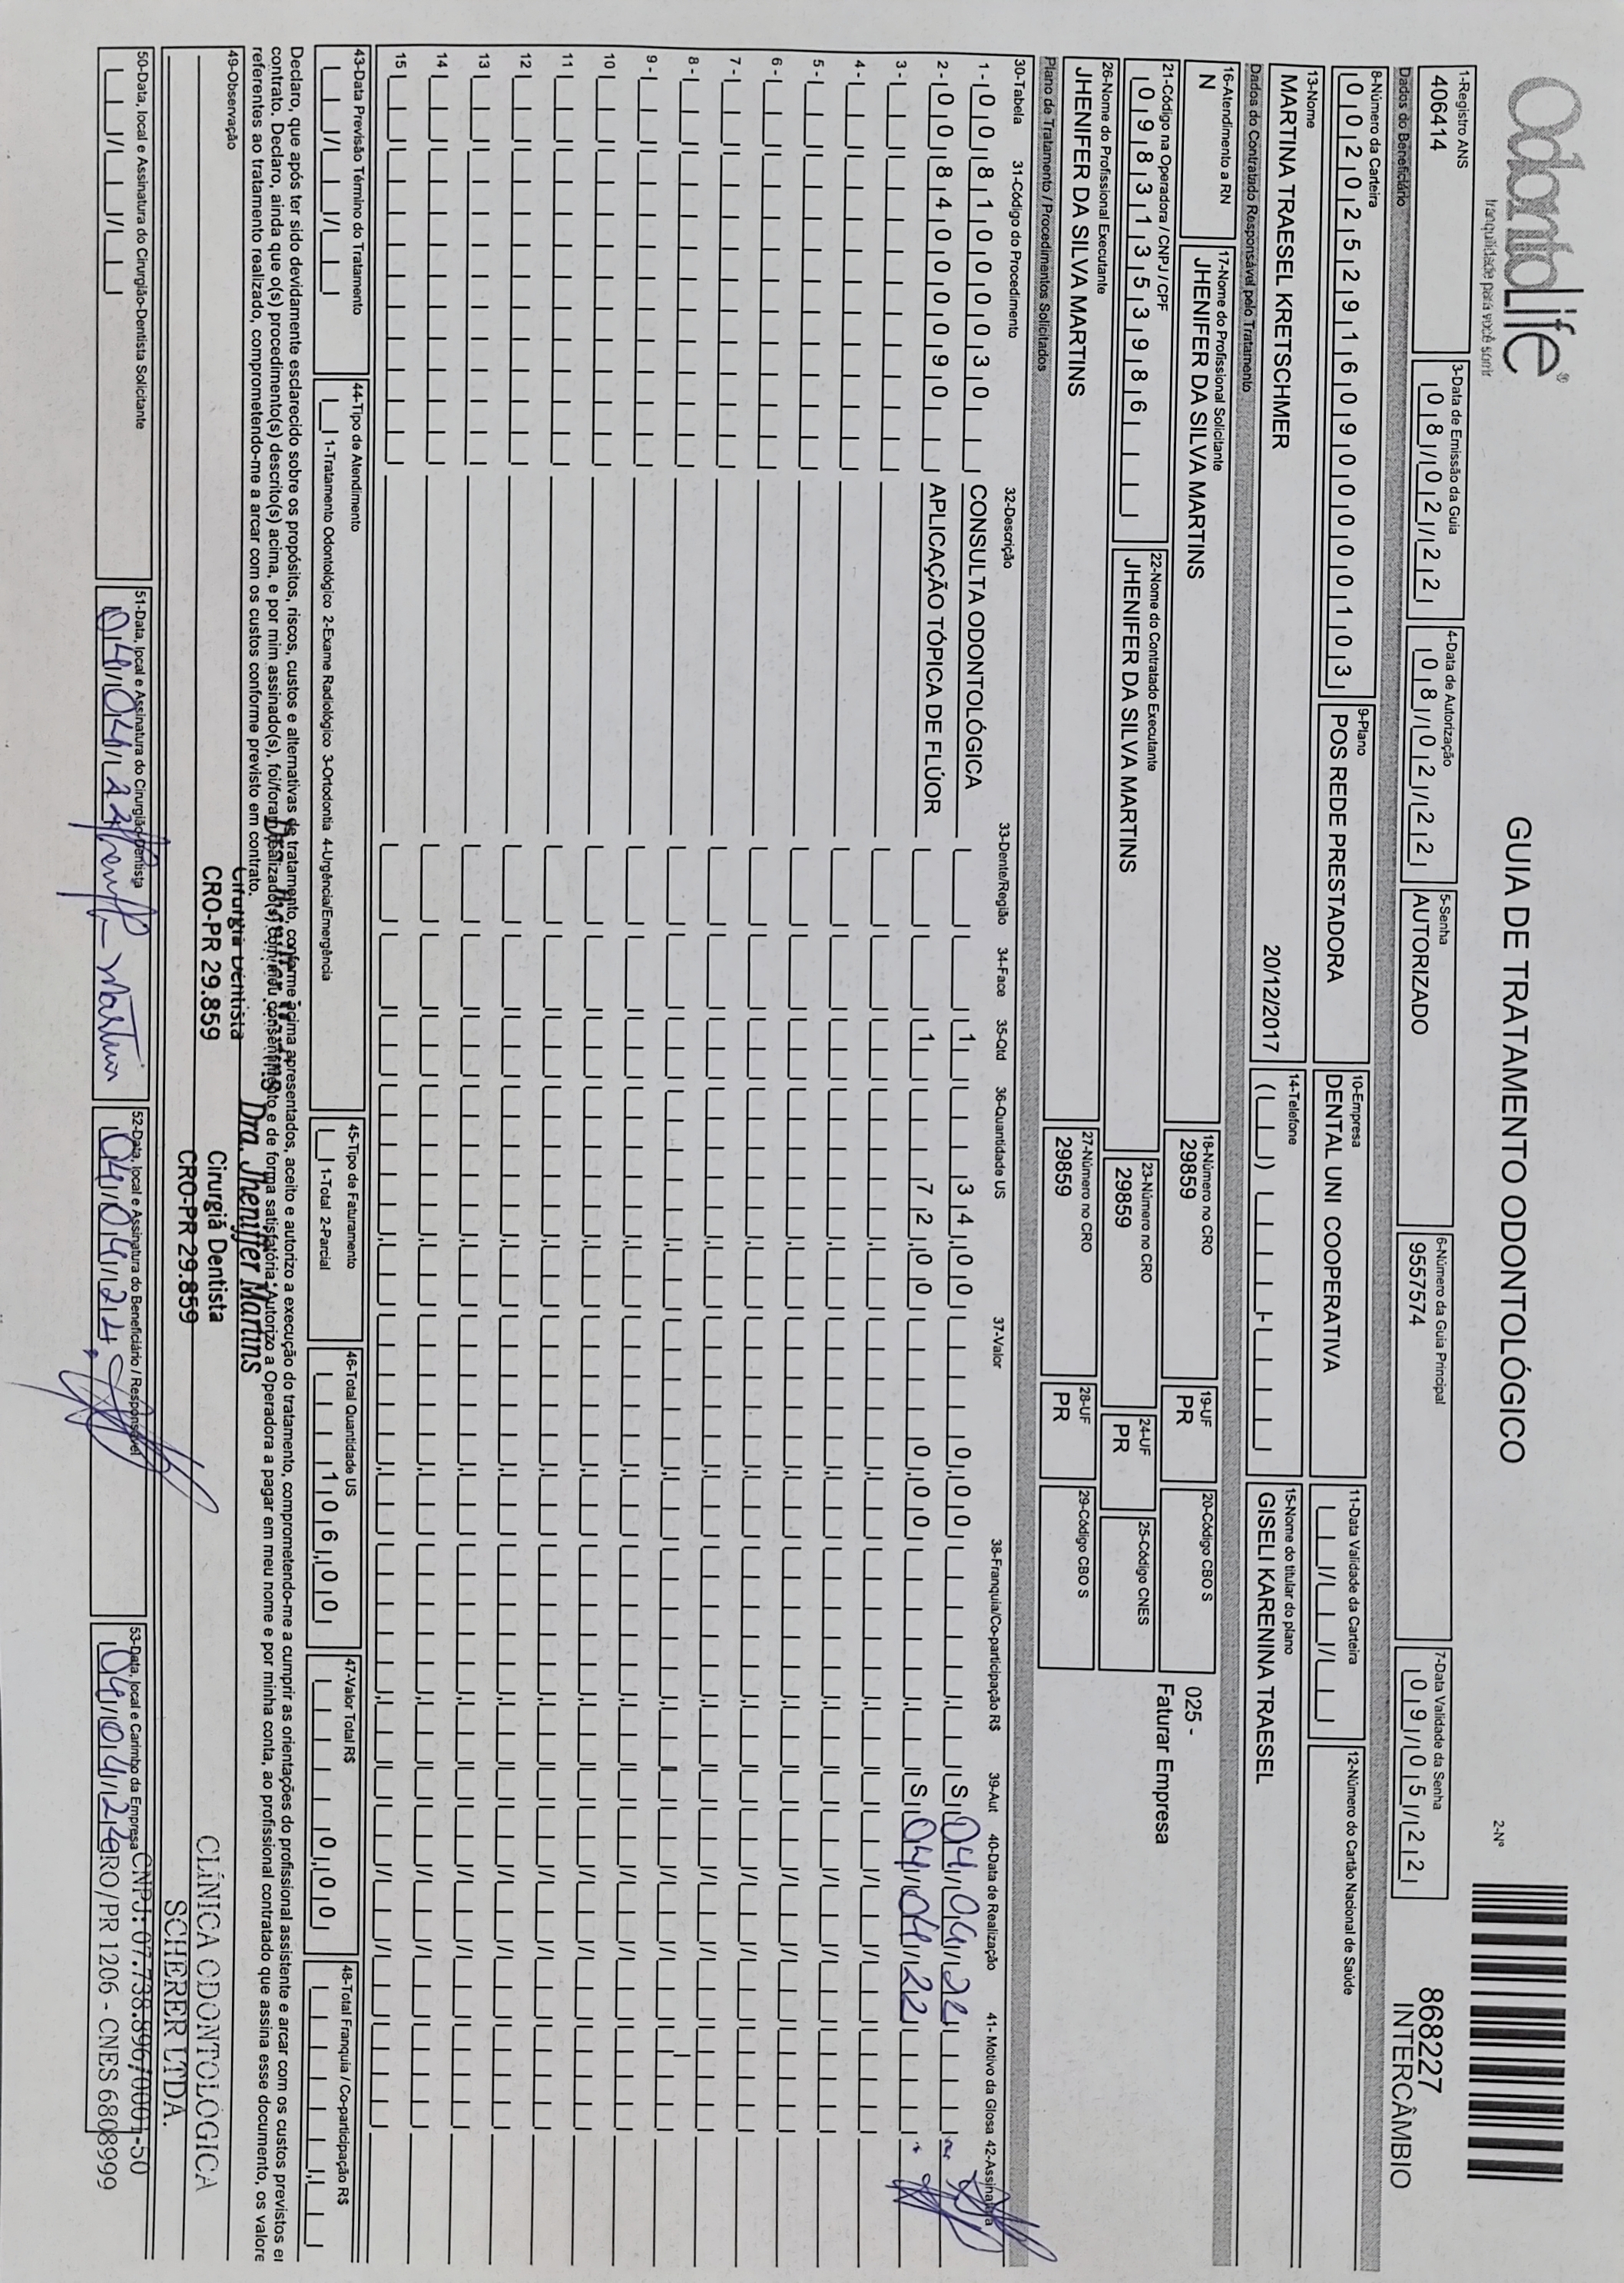 OdontoLife®
tranquilidade para você sorrir
GUIA DE TRATAMENTO ODONTOLÓGICO
2-Nº
868227
INTERCÂMBIO
1-Registro ANS
406414
3-Data de Emissão da Guia
08/02/22
4-Data de Autorização
08/02/22
5-Senha
AUTORIZADO
6-Número da Guia Principal
9557574
7-Data Validade da Senha
09/05/22
Dados do Beneficiário
8-Número da Carteira
00202529160900000103
9-Plano
POS REDE PRESTADORA
10-Empresa
DENTAL UNI COOPERATIVA
11-Data Validade da Carteira
12-Número do Cartão Nacional de Saúde
13-Nome
MARTINA TRAESEL KRETSCHMER
20/12/2017
14-Telefone
15-Nome do titular do plano
GISELI KARENINA TRAESEL
Dados do Contratado Responsável pelo Tratamento
16-Atendimento a RN
N
17-Nome do Profissional Solicitante
JHENIFER DA SILVA MARTINS
18-Número no CRO
29859
19-UF
PR
20-Código CBO S
025 -
Faturar Empresa
21-Código na Operadora / CNPJ / CPF
09831353986
22-Nome do Contratado Executante
JHENIFER DA SILVA MARTINS
23-Número no CRO
29859
24-UF
PR
25-Código CNES
26-Nome do Profissional Executante
JHENIFER DA SILVA MARTINS
27-Número no CRO
29859
28-UF
PR
29-Código CBO S
Plano de Tratamento / Procedimentos Solicitados
30-Tabela 31-Código do Procedimento 32-Descrição 33-Dente/Região 34-Face 35-Qtd 36-Quantidade US 37-Valor 38-Franquia/Co-participação R$ 39-Aut 40-Data de Realização 41- Motivo da Glosa 42-Assinatura
1 - 00 81000030 CONSULTA ODONTOLÓGICA 1 34,00 0,00 S 04/04/22
2 - 00 84000090 APLICAÇÃO TÓPICA DE FLÚOR 1 72,00 0,00 S 04/04/22
3 -
4 -
5 -
6 -
7 -
8 -
9 -
10
11
12
13
14
15
43-Data Previsão Término do Tratamento
44-Tipo de Atendimento
1-Tratamento Odontológico 2-Exame Radiológico 3-Ortodontia 4-Urgência/Emergência
45-Tipo de Faturamento
1-Total 2-Parcial
46-Total Quantidade US
106,00
47-Valor Total R$
0,00
48-Total Franquia / Co-participação R$
Declaro, que após ter sido devidamente esclarecido sobre os propósitos, riscos, custos e alternativas de tratamento, conforme acima apresentados, aceito e autorizo a execução do tratamento, comprometendo-me a cumprir as orientações do profissional assistente e arcar com os custos previstos em
contrato. Declaro, ainda que o(s) procedimento(s) descrito(s) acima, e por mim assinado(s), foi/foram realizado(s) com meu consentimento e de forma satisfatória. Autorizo a Operadora a pagar em meu nome e por minha conta, ao profissional contratado que assina esse documento, os valore
referentes ao tratamento realizado, comprometendo-me a arcar com os custos conforme previsto em contrato.
49-Observação
Cirurgiã Dentista
CRO-PR 29.859
Dra. Jheniffer Martins
Cirurgiã Dentista
CRO-PR 29.859
CLÍNICA ODONTOLÓGICA
SCHERER LTDA.
CNPJ: 07.738.896/0001-50
CRO/PR 1206 - CNES 6808999
50-Data, local e Assinatura do Cirurgião-Dentista Solicitante
51-Data, local e Assinatura do Cirurgião-Dentista
04/04/22 Martins
52-Data, local e Assinatura do Beneficiário / Responsável
04/04/22
53-Data, local e Carimbo da Empresa
04/04/22